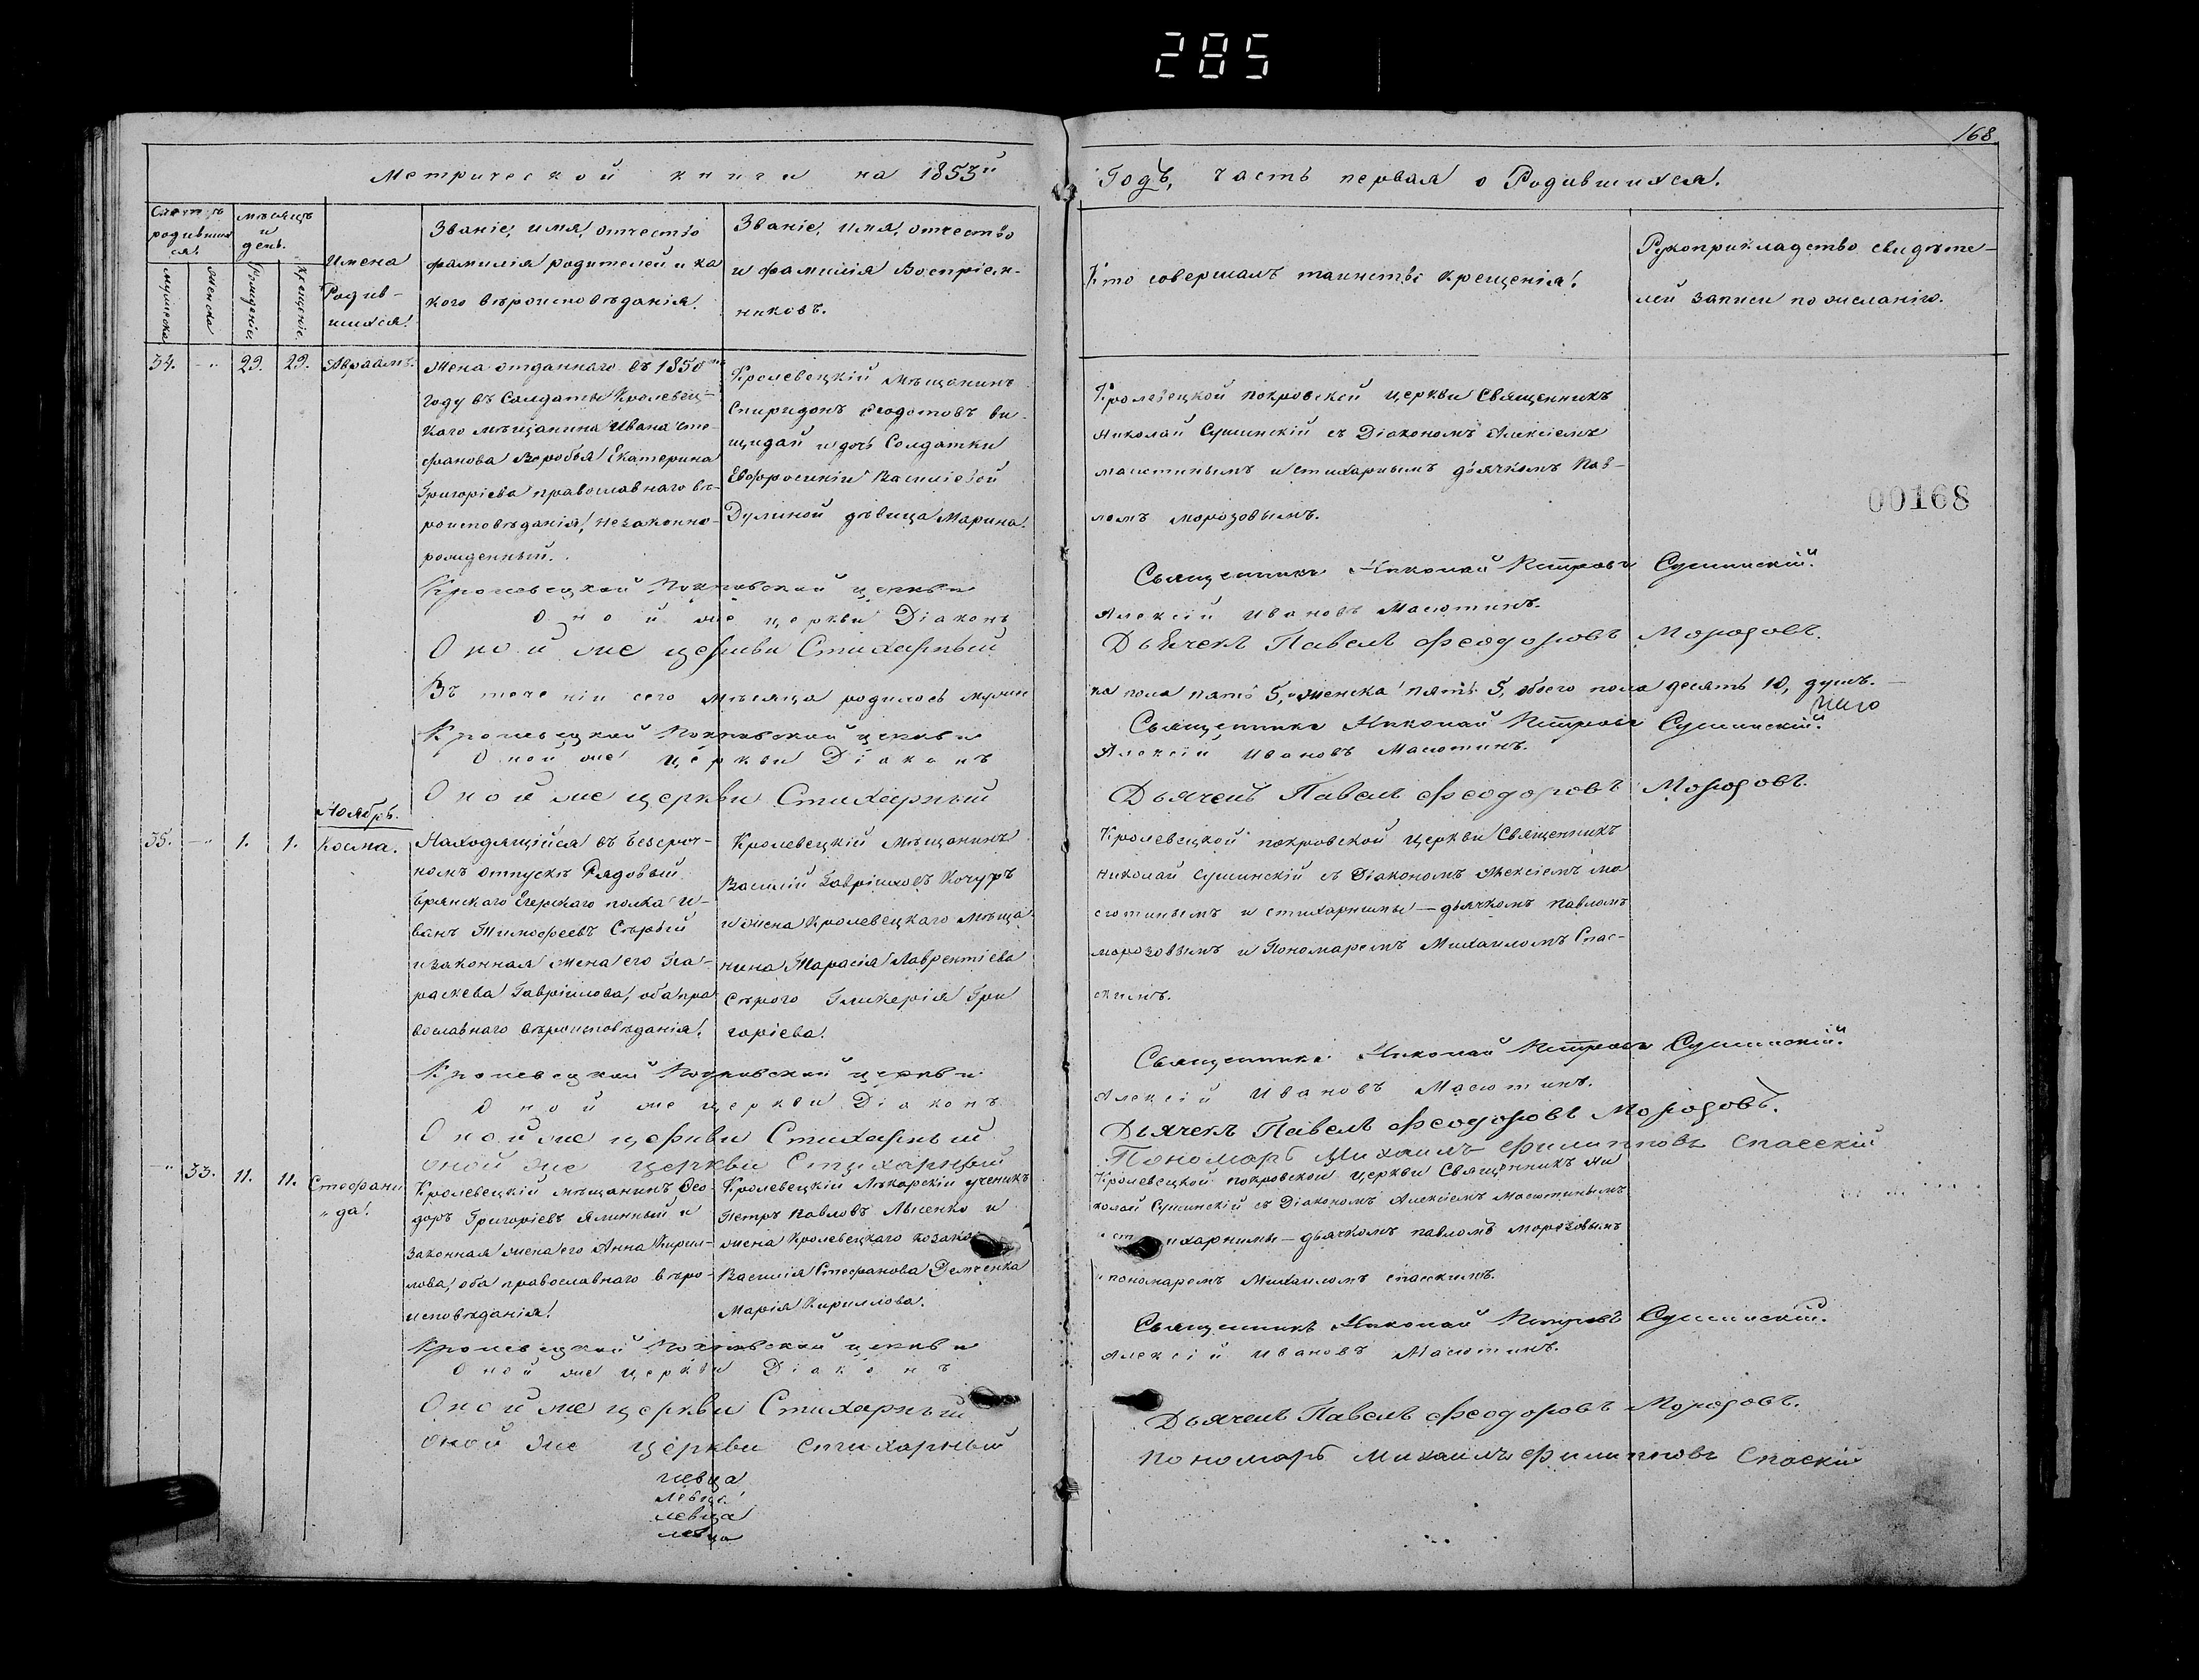 285
168.
Метрической книги на 1853й
Годъ, часть первая о Родившихся.
Счетъ родившихся.
мѣсяцъ и день.
Имена Родившихся.
Званіе, имя, отчество
фамилія родителей и ка
кого вѣроисповѣданія.
Званіе, имя, отчество
и фамилія Воспріем-
никовъ.
Кто совершалъ таинство крещенія.
Рукоприкладство свидѣте-
лей записи по желанію.
мужеска
женска
Рожденіе.
Крещеніе.
34. - " 29. 29. Авраамъ.
Жена отданнаго въ 1850мъ
году въ Солдаты Кролевец-
каго мѣщанина Ивана Сте-
фанова Воробья Екатерина
Григорієва православнаго вѣ-
роисповѣданія, незаконно-
рожденный.
Кролевецкій Мѣщанинъ
Спиридонъ Феодотовъ
и дочь Солдатки
Евфросиніи Василіевой
Дулиной дѣвица Марина.
Кролевецкой покровской церкви Священникъ
Николай Сушинскій съ Діакономъ Алексіемъ
масютинымъ и стихарнымъ дьячкомъ Пав-
ломъ Морозовымъ.
00168
Кролевецкой Покровской церкви Священникъ Николай Петровъ Сушинскій.
Оной же церкви Діаконъ Алексій Ивановъ Масютинъ.
Оной же церкви Стихарный Дьячекъ Павелъ Феодоровъ Морозовъ.
Въ теченіи сего мѣсяца родилось мужес
ка пола пять 5, женска пять 5, обоего пола десять 10, душъ.
Кролевецкой Покровской церкви Священникъ Николай Петровъ Сушинскій.
Оной же церкви Діаконъ Алексій Ивановъ Масютинъ.
Оной же церкви Стихарный Дьячекъ Павелъ Феодоровъ Морозовъ.
Ноябрь.
35. - " 1. 1. Косма.
Находящійся въ безсроч-
номъ отпускѣ Рядовый
Брянскаго Егерскаго полка И-
ванъ Тимофеевъ Сѣрый
и законная жена его Па-
раскева Гавріилова, оба пра-
вославнаго вѣроисповѣданія.
Кролевецкій Мѣщанинъ
Василій Гавріиловъ Кочуръ
и жена Кролевецкаго Мѣща-
нина Тарасія Лаврентіева
Сѣрого Гликерія Гри
горіева.
Кролевецкой покровской церкви Священникъ
Николай Сушинскій съ Діакономъ Алексіемъ ма
сютинымъ и стихарными - дьячкомъ Павломъ
морозовымъ и Пономаремъ Михаиломъ Спас-
скимъ.
Кролевецкой Покровской церкви Священникъ Николай Петровъ Сушинскій.
Оной же церкви Діаконъ Алексій Ивановъ Масютинъ.
Оной же церкви Стихарный Дьячекъ Павелъ Феодоровъ Морозовъ.
оной же церкви Стихарный Пономарь Михаилъ Филипповъ Спасскій
- " 33. 11. 11. Стефани
"да.
Кролевецкій мѣщанинъ Фео-
доръ Григоріевъ Ялинный и
законная жена его Анна Кирил-
лова, оба православнаго вѣро-
исповѣданія.
Кролевецкій Лѣкарскій ученикъ
Петръ Павловъ Лысенко и
жена Кролевецкаго козака
Василія Стефанова Демченка
Марія Кириллова.
Кролевецкой покровской церкви Священникъ Ни
колай Сушинскій съ Діакономъ Алексіемъ Масютинымъ
и стихарными - дьячкомъ павломъ Морозовымъ
и пономаремъ Михаиломъ спасскимъ.
Кролевецкой Покровской церкви Священникъ Николай Петровъ Сушинскій.
Оной же церкви Діаконъ Алексій Ивановъ Масютинъ.
Оной же церкви Стихарный Дьячекъ Павелъ Феодоровъ Морозовъ.
оной же церкви стихарный пономарь Михаилъ Филипповъ Спаскій
левца
левца